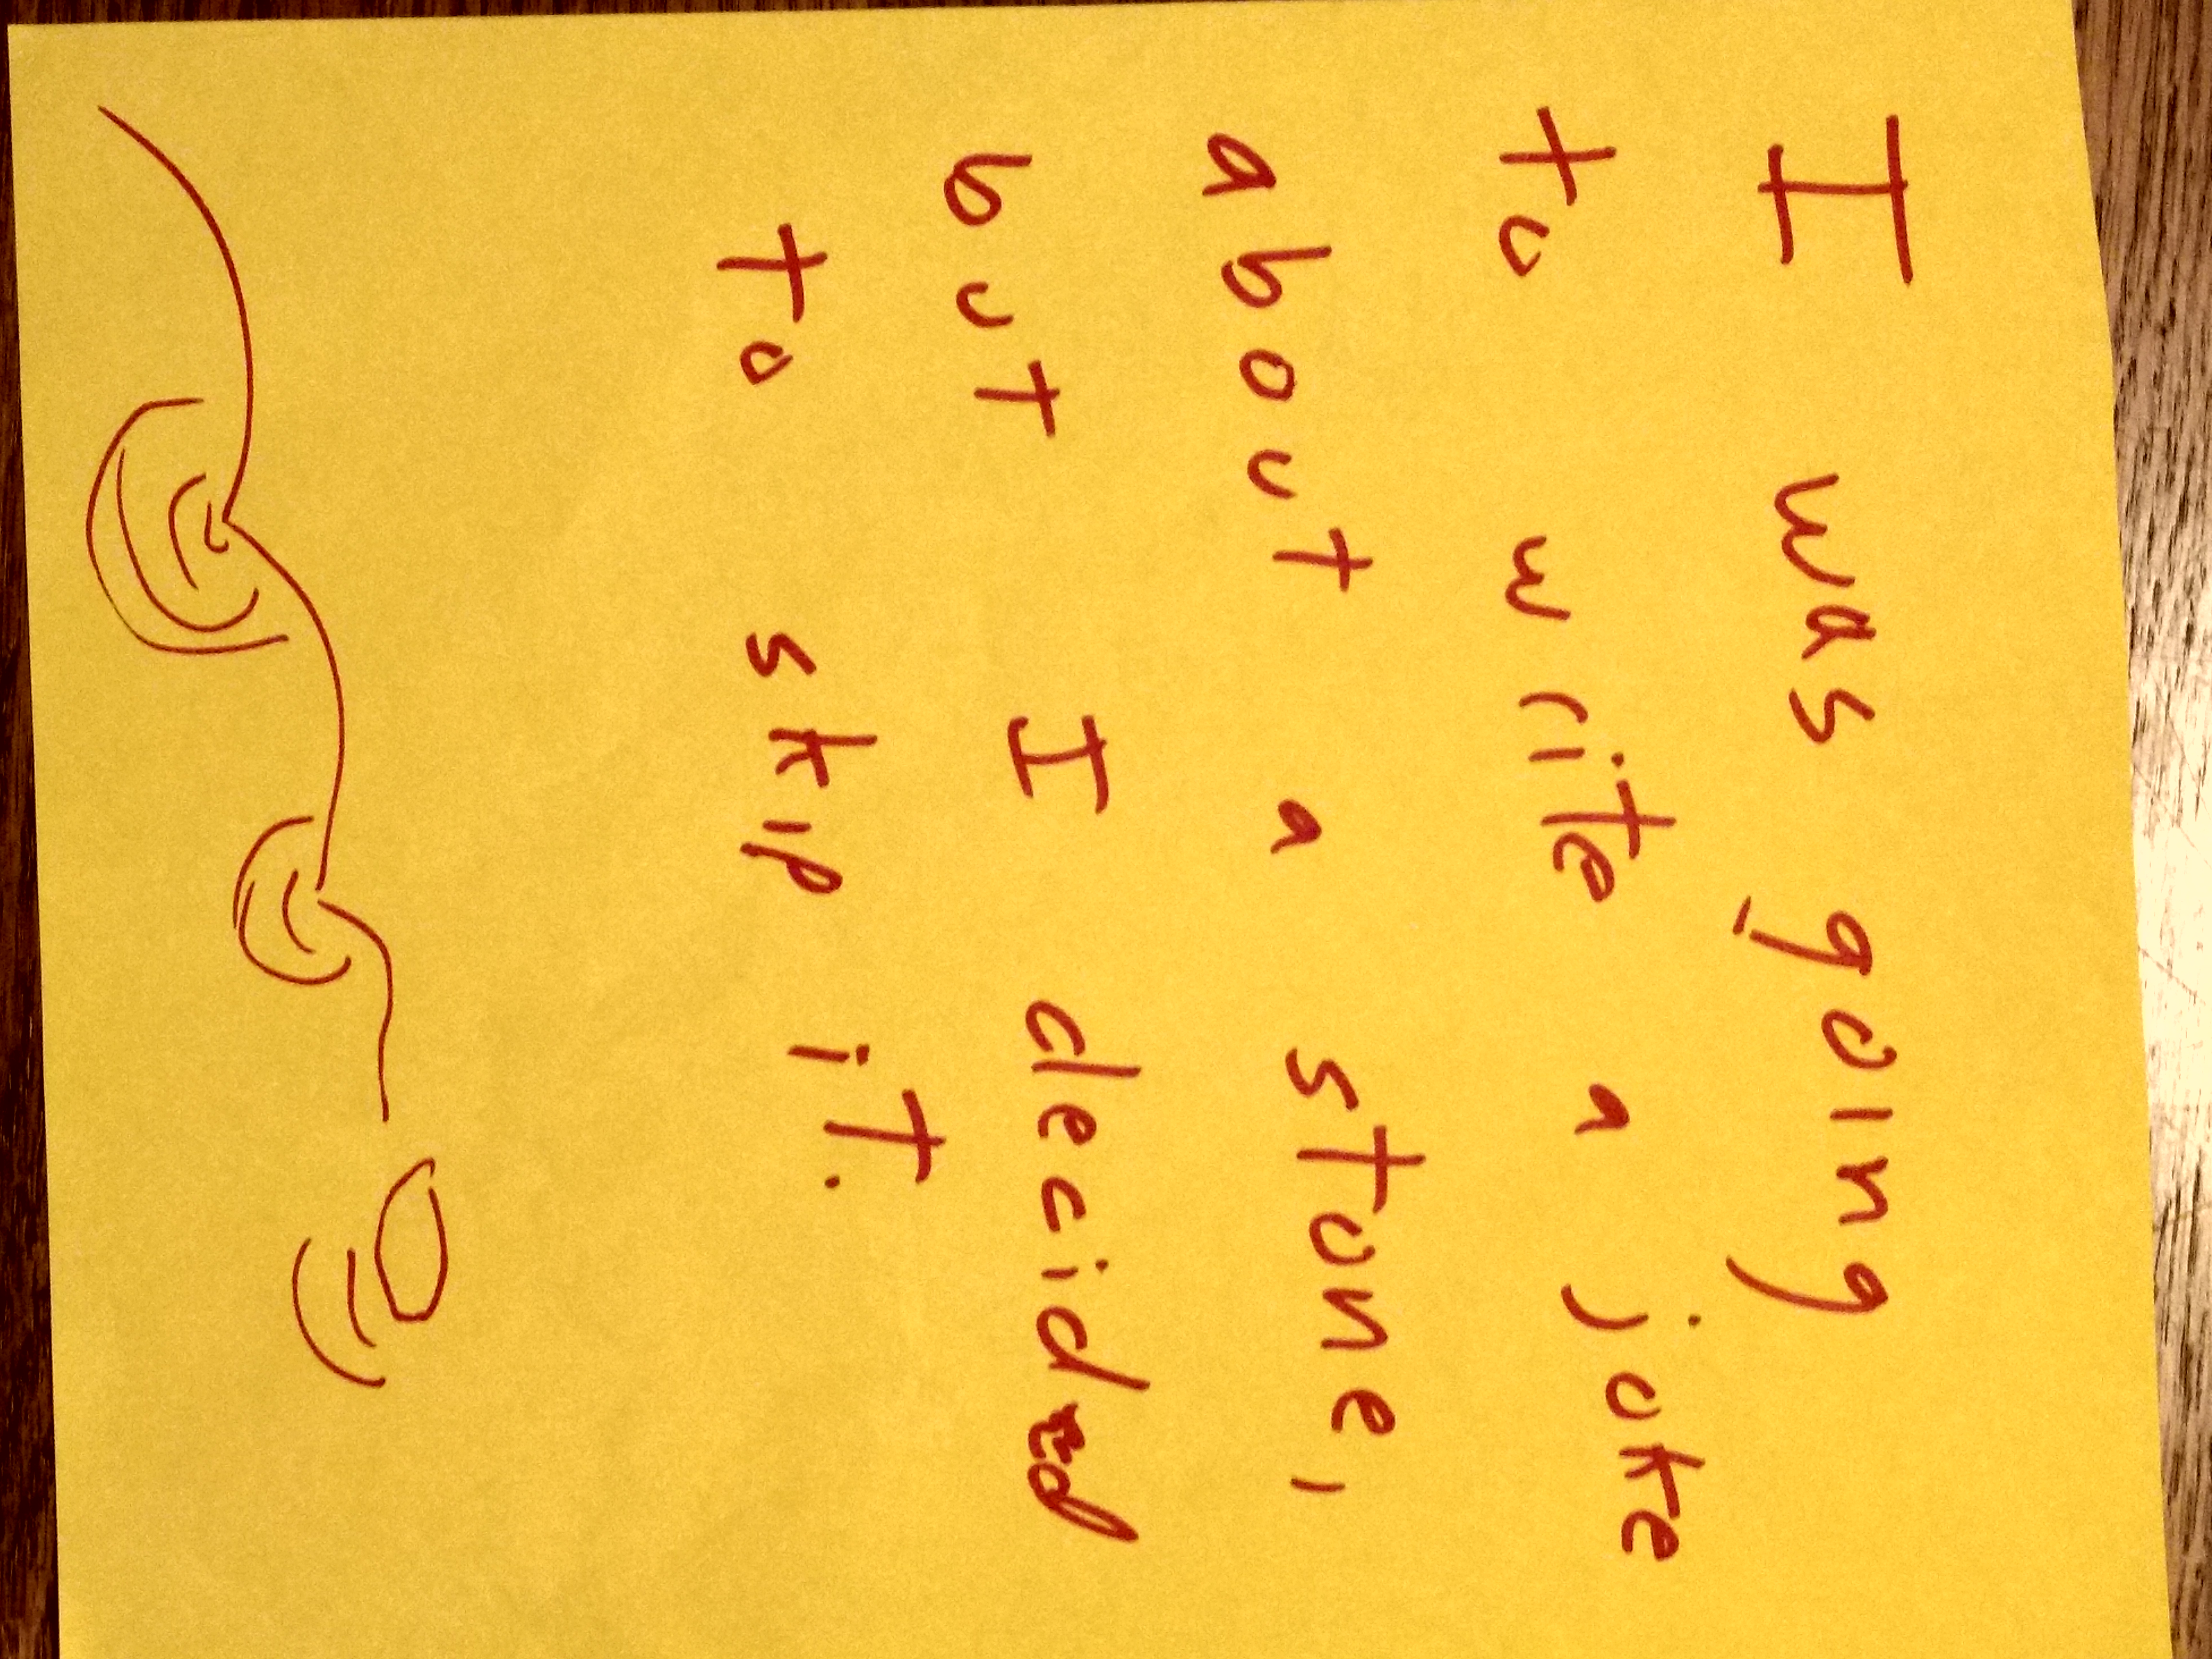 I was going
to write a joke
about a stone,
but I decided
to skip it.